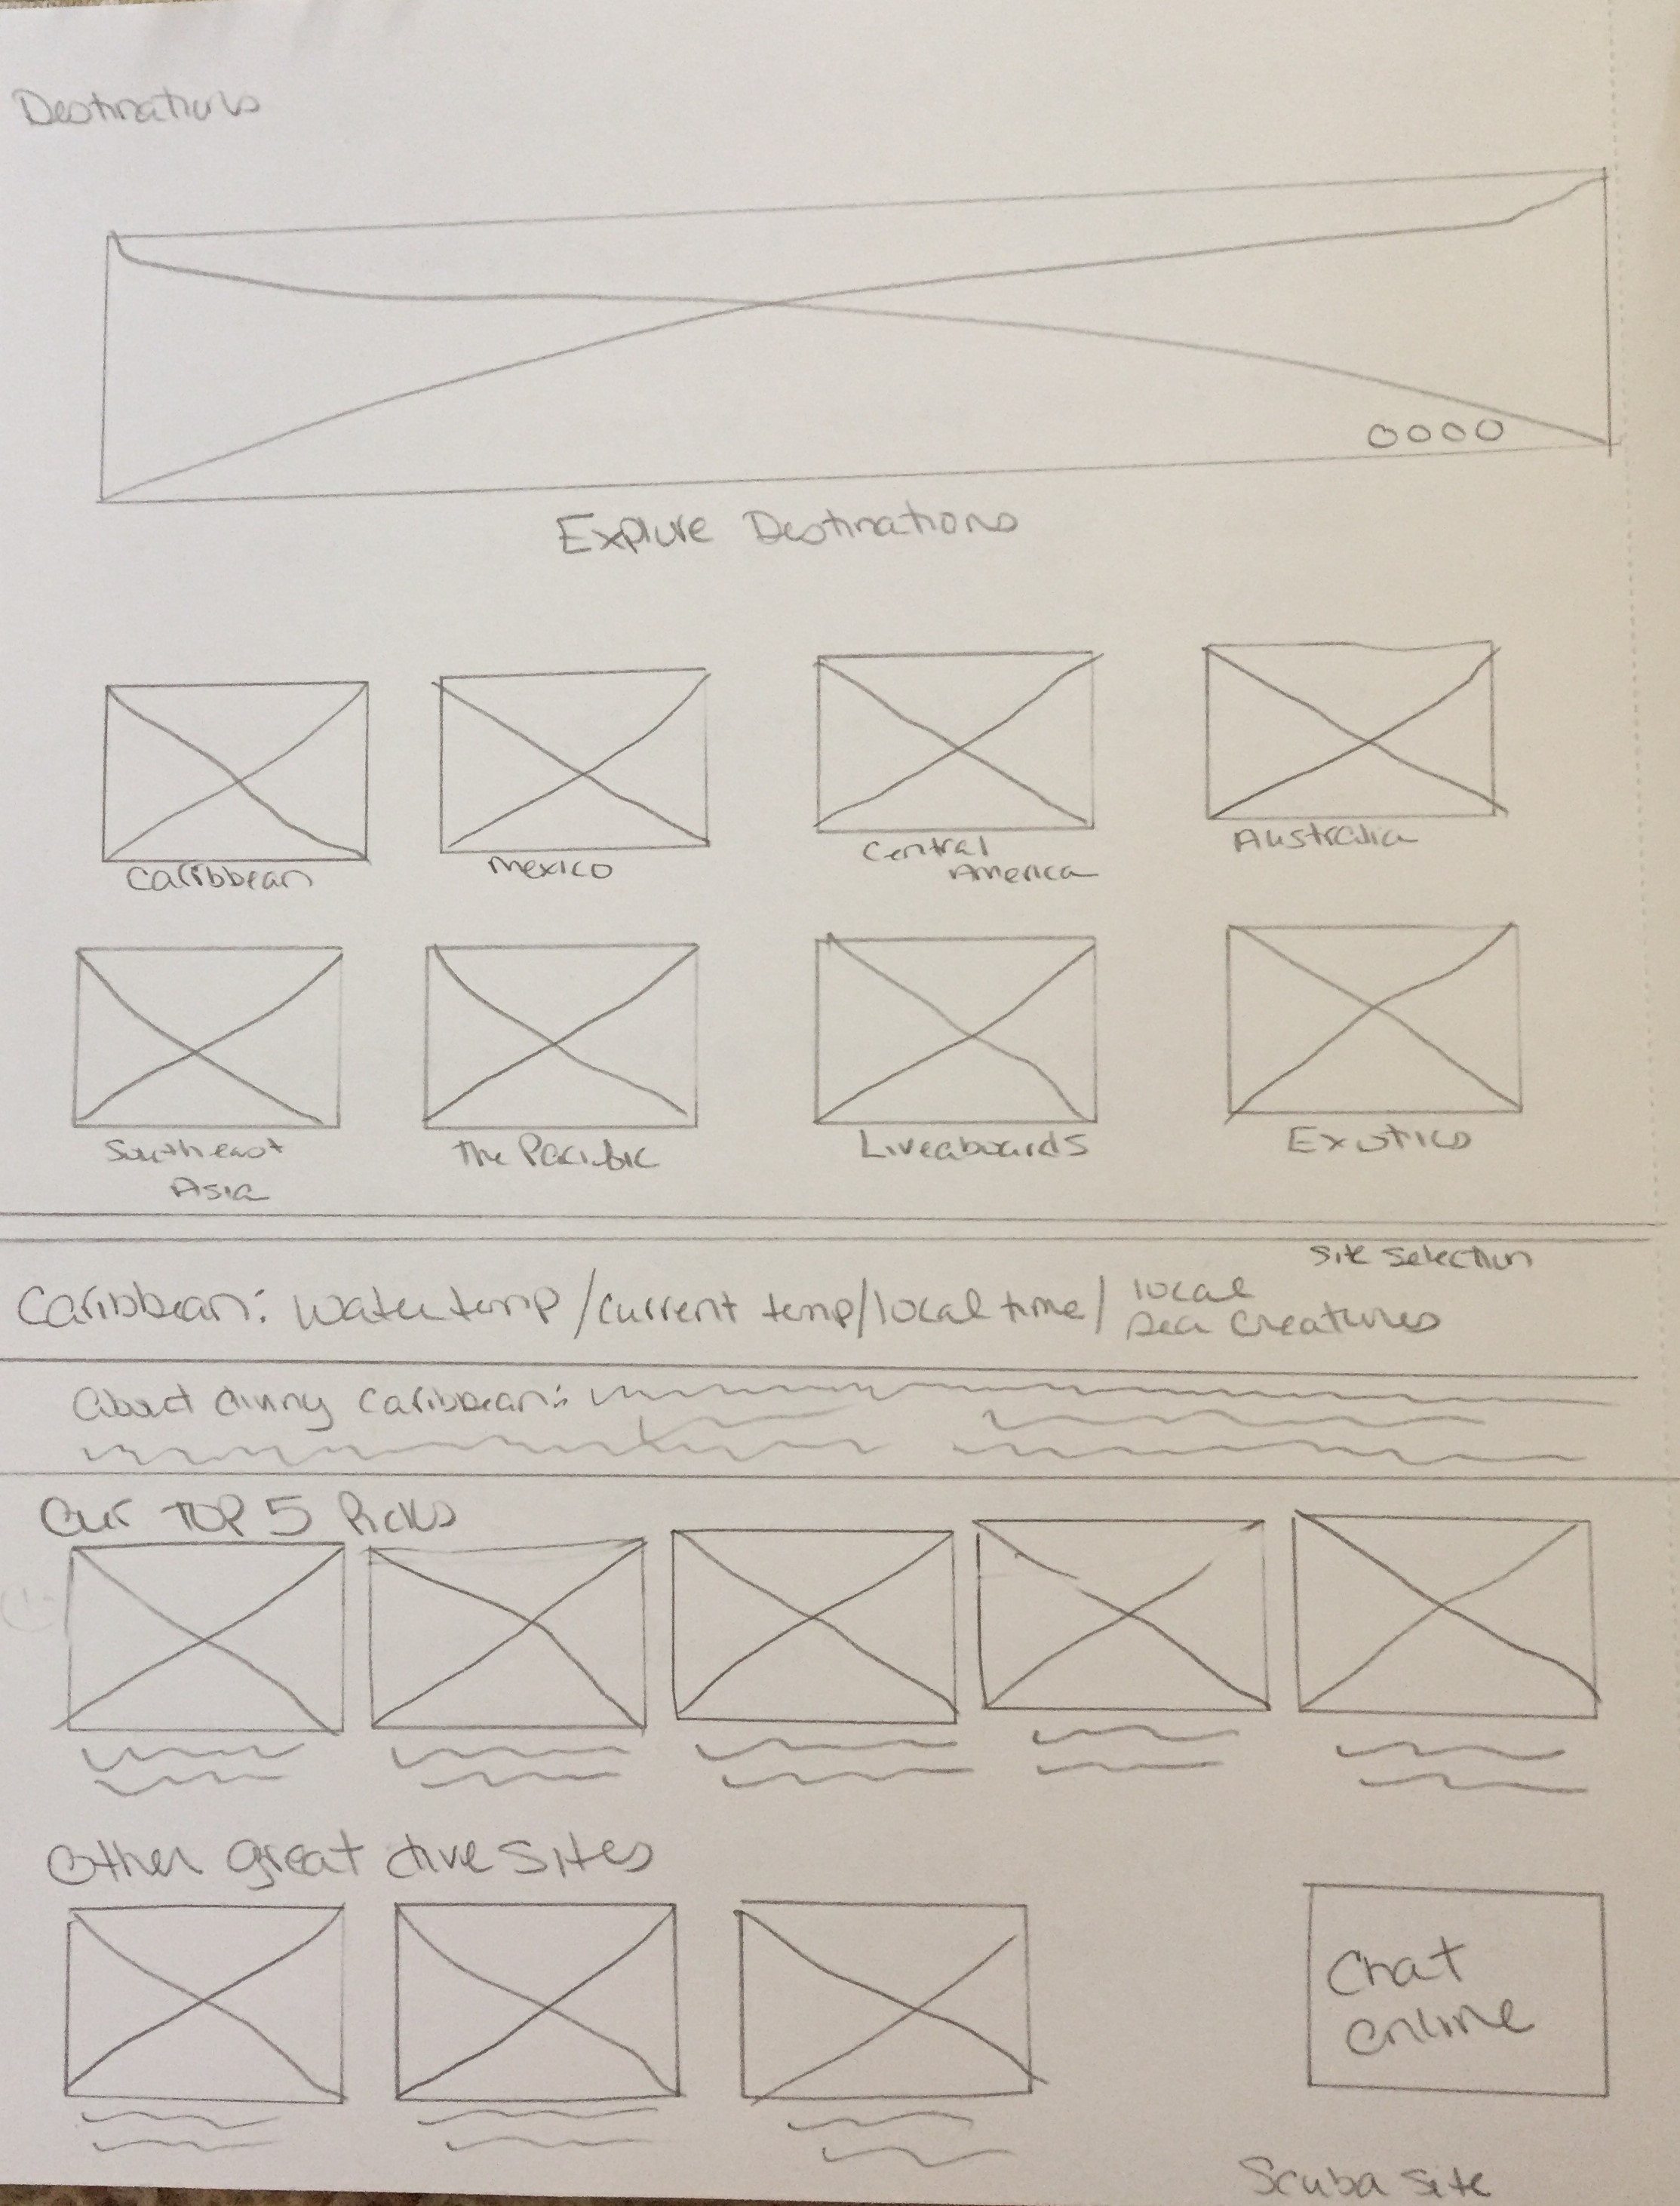 Destinations
OOOO
Explore Destinations
Caribbean
Mexico
Central
America
Australia
Southeast
Asia
The Pacific
Liveaboards
Exotics
Site Selection
Caribbean: water temp / current temp / local time / local
sea creatures
About diving Caribbean:
Our TOP 5 Picks
Other great dive sites
Chat
online
Scuba Site